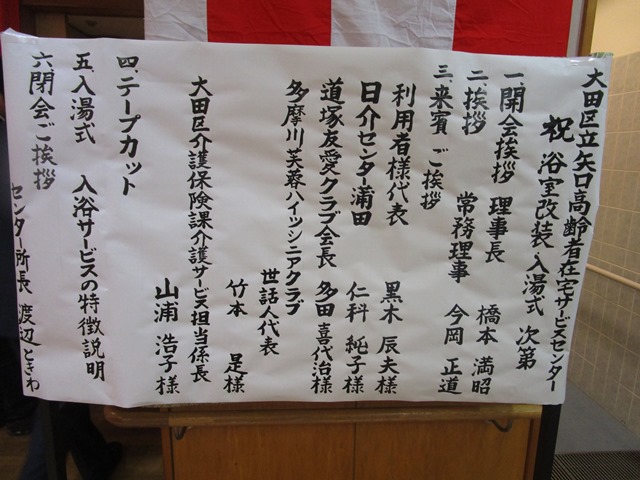 大田区立矢口高齢者在宅サービスセンター
祝 浴室改装 入湯式 次第
一、開会挨拶 理事長 橋本 満昭
二、挨拶 常務理事 今岡 正道
三、来賓ご挨拶
利用者様代表 黒木 辰夫様
日介センター蒲田 仁科 純子様
道塚友愛クラブ会長 多田 喜代治様
多摩川芙蓉ハイツシニアクラブ
世話人代表 竹本 足様
大田区介護保険課介護サービス担当係長
山浦 浩子様
四、テープカット
五、入湯式 入浴サービスの特徴説明
六、閉会ご挨拶
センター所長 渡辺 ときわ